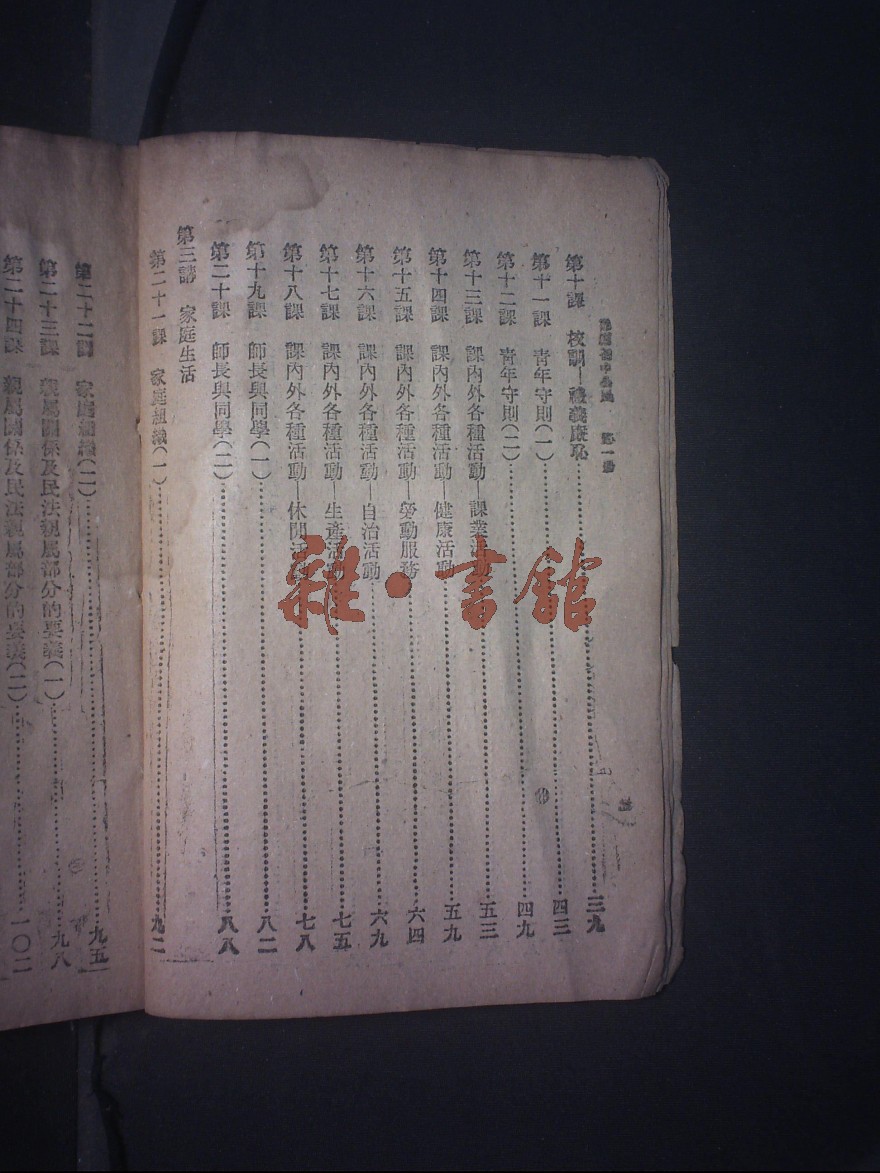 初中公民 第一冊
第十課 校訓—禮義廉恥 三九
第十一課 青年守則(一) 四三
第十二課 青年守則(二) 四九
第十三課 課內外各種活動—課業活動 五三
第十四課 課內外各種活動—健康活動 五九
第十五課 課內外各種活動—勞動服務 六四
第十六課 課內外各種活動—自治活動 六九
第十七課 課內外各種活動—生產活動 七五
第十八課 課內外各種活動—休閒活動 七八
第十九課 師長與同學(一) 八二
第二十課 師長與同學(二) 八八
第三講 家庭生活
第二十一課 家庭組織(一) 九二
第二十二課 家庭組織(二) 九五
第二十三課 親屬關係及民法親屬部分的要義(一) 九八
第二十四課 親屬關係及民法親屬部分的要義(二) 一〇二
雜·書館